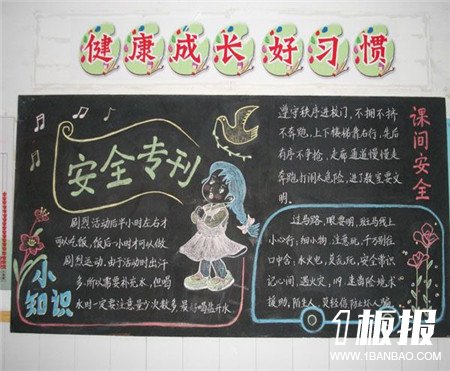 健康成长好习惯
安全专刊
剧烈活动后半小时左右才
可以吃饭，饭后一小时才可以做
剧烈运动，由于活动时出汗
多，所以需要补充水，但喝
水时一定要注意量少次数多，最好喝盐开水
小
知识
课间安全
遵守秩序进校门，不拥不挤
不奔跑，上下楼梯靠右行，先后
有序不争抢，走廊通道慢慢走
奔跑打闹太危险，进了教室要文
明。
过马路，眼要明，斑马线上
小心行，细小物，注意玩，千万别往
口中含，水火电，莫乱玩，安全常识
记心间，遇火灾，119，逃离险境求
援助，陌生人，莫轻信防止坏人骗
1板报
WWW.1BANBAO.COM